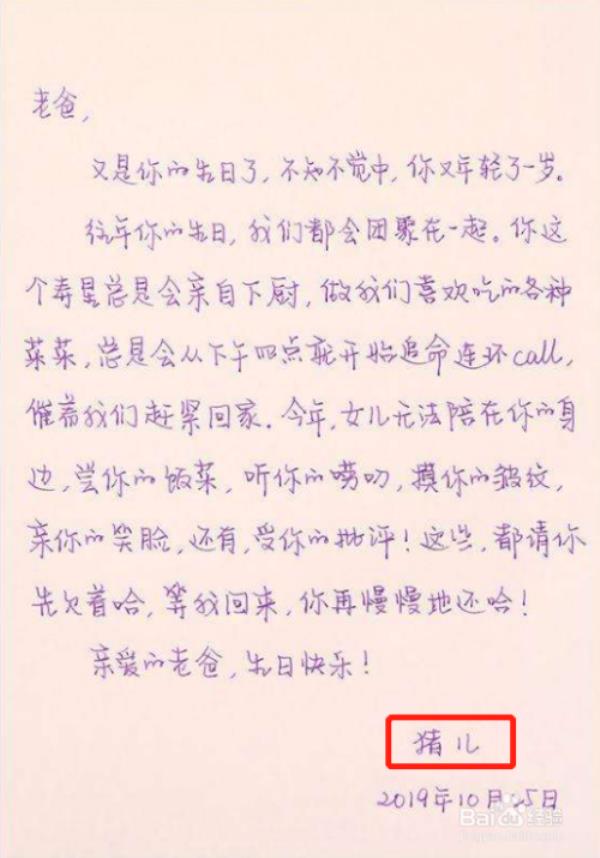 老爸,
又是你的生日了,不知不觉中,你又年轻了一岁。
往年你的生日,我们都会团聚在一起。你这
个寿星总是会亲自下厨,做我们喜欢吃的各种
菜菜,总是会从下午四点就开始追命连环call,
催着我们赶紧回家。今年,女儿无法陪在你的身
边,尝你的饭菜,听你的唠叨,摸你的皱纹,
亲你的笑脸,还有,受你的批评!这些,都请你
先欠着哈,等我回来,你再慢慢地还哈!
亲爱的老爸,生日快乐!
猪儿
2019年10月25日
Baidu经验